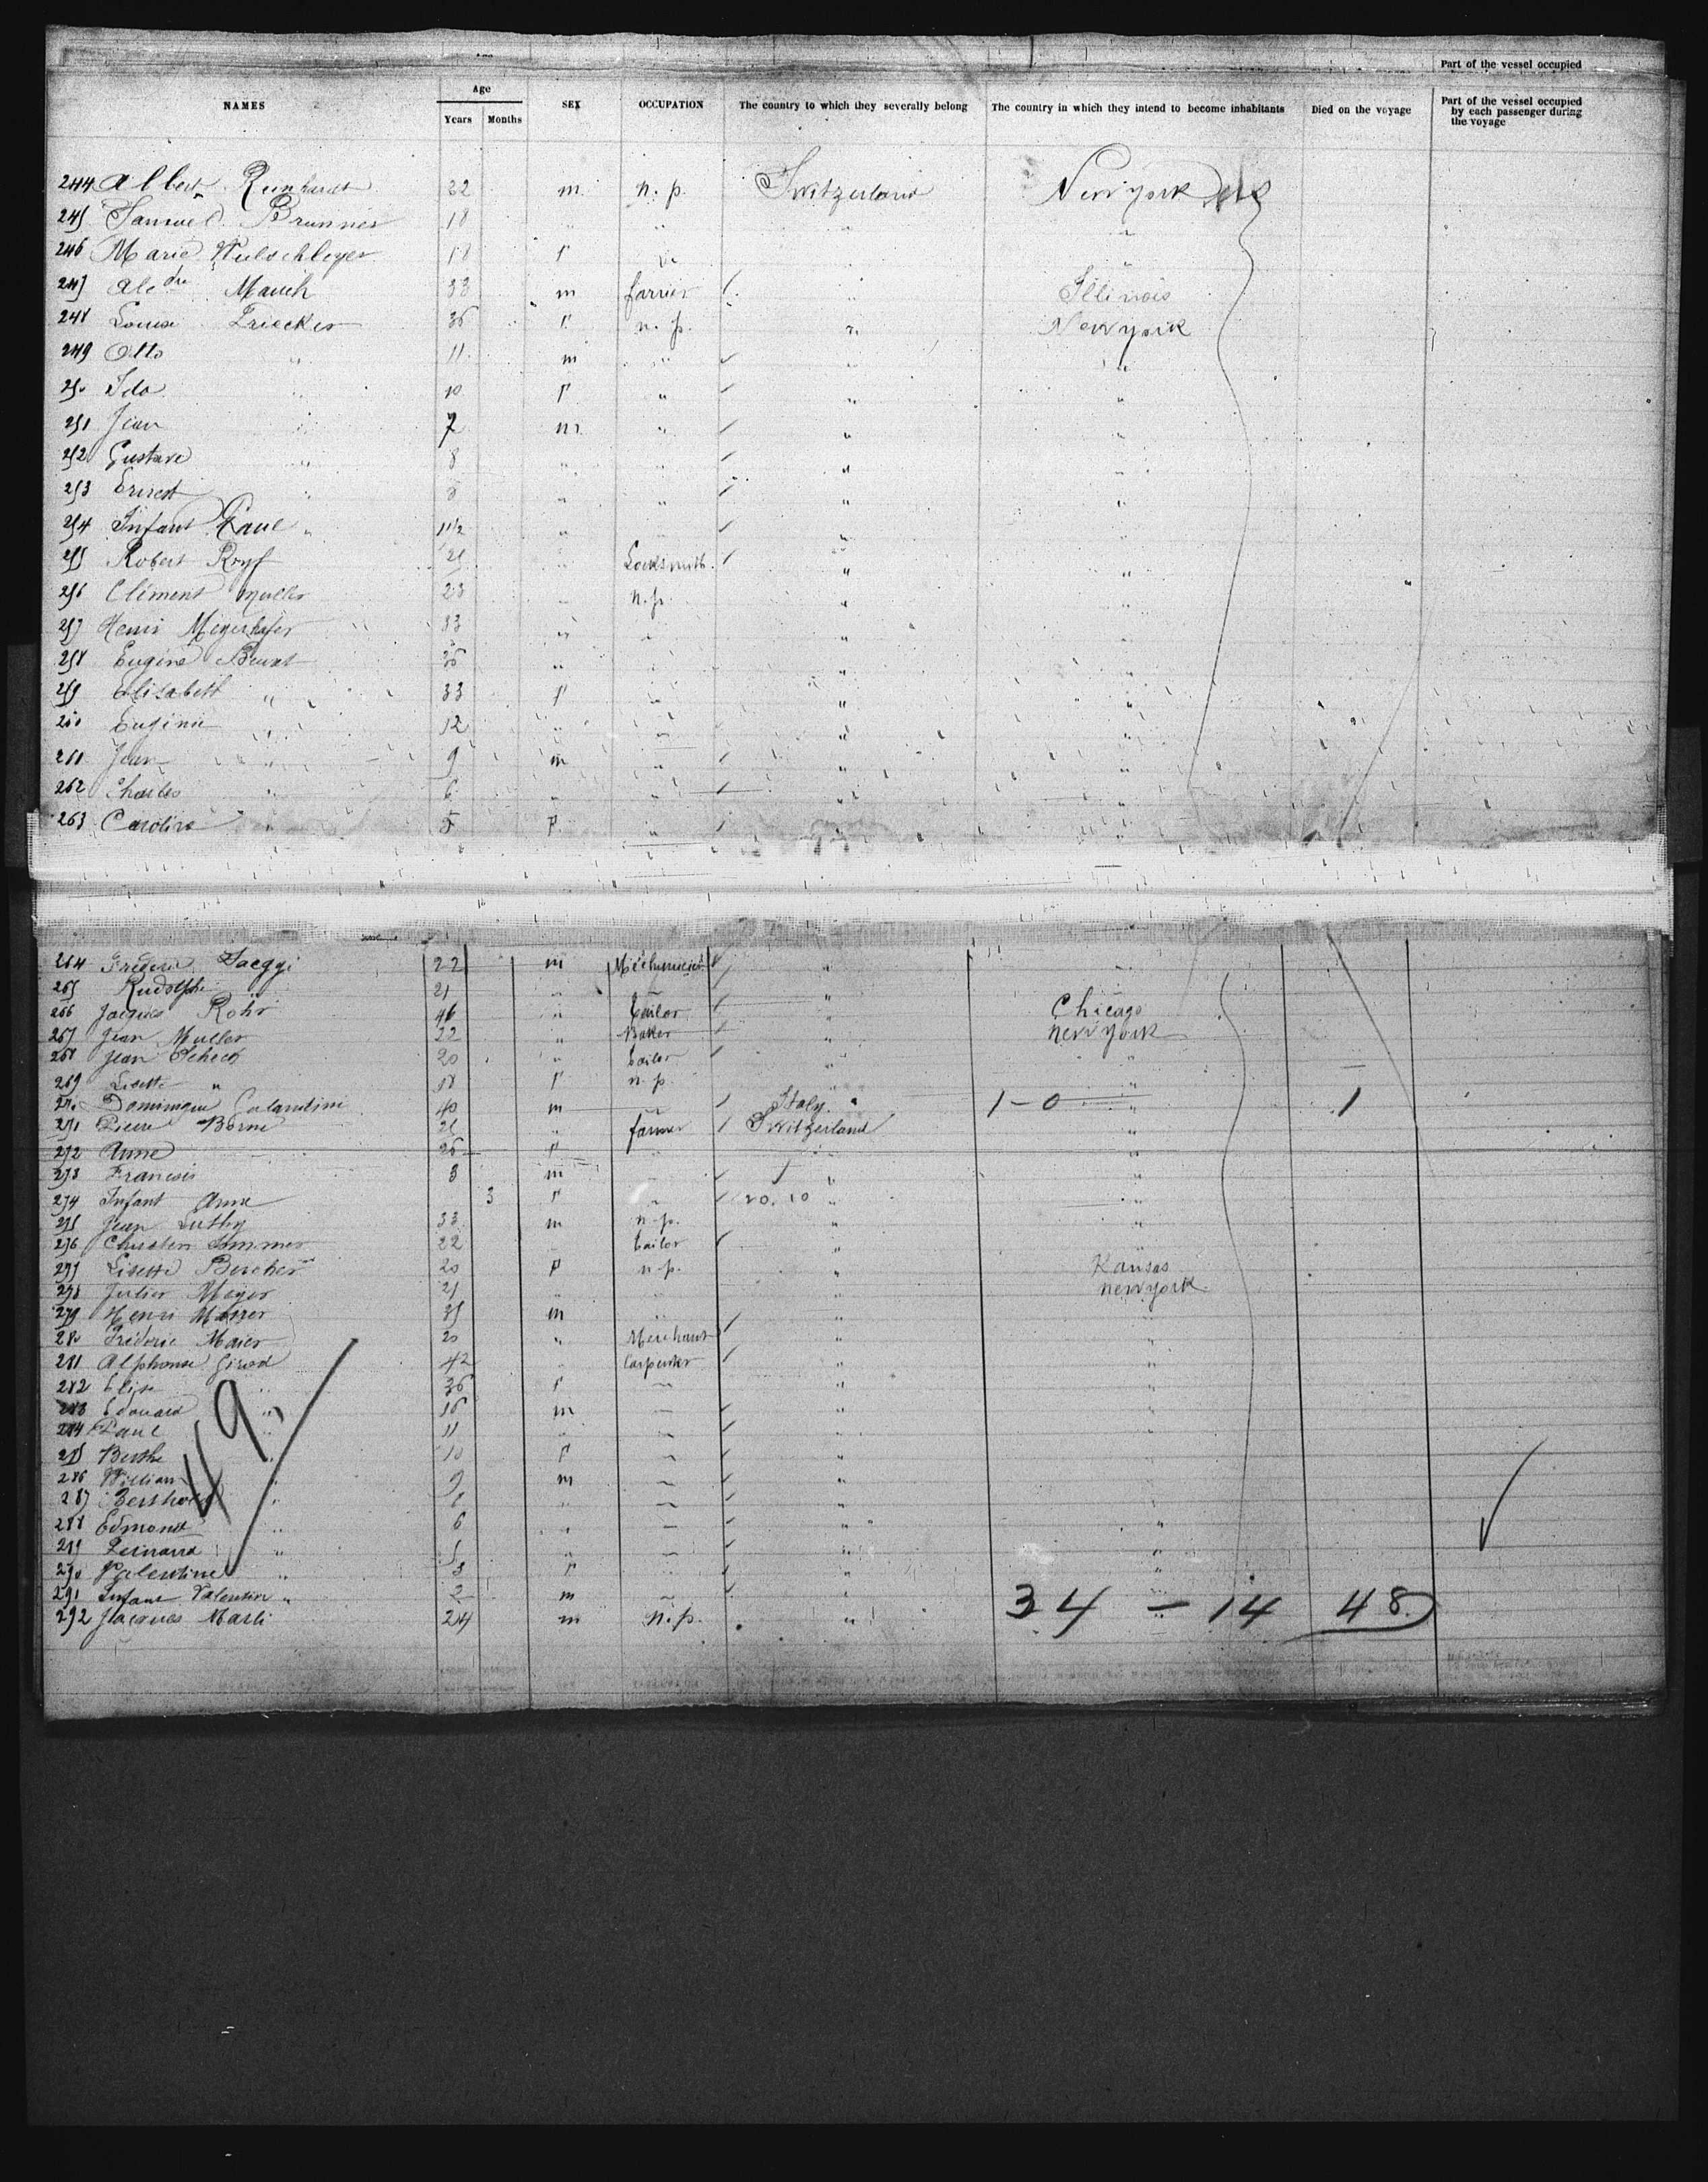 Part of the vessel occupied
NAMES Age Years Months SEX OCCUPATION The country to which they severally belong The country in which they intend to become inhabitants Died on the voyage Part of the vessel occupied by each passenger during the voyage
244 Albert Reinhardt 22 m n. p. Switzerland New york
245 Samuel Brunner 18 " " " "
246 Marie 18 f " " "
247 Alcdre Mauch 33 m farrier " Illinois
248 Louise Friecker 36 f n. p. " New york
249 Otto " 11 m " " "
250 Ida " 10 f " " "
251 Jean " 7 m " " "
252 Gustave " 8 " " " "
253 Ernest " 5 " " " "
254 Infant Paul " 1 1/2 " " " "
255 Robert Ryf 21 " Locksmith " "
256 Clément Muller 23 " n. p. " "
257 Henri Meyerhofer 33 " " " "
258 Eugène 36 " " " "
259 Elisabeth " 33 f " " "
260 Eugénie " 12 " " " "
261 Jean " 9 m " " "
262 Charles " 6 " " " "
263 Caroline " 5 f " " "
264 Frédéric Jaeggi 22 m " "
265 Rudolphe 21 " " " "
266 Jacques Rohr 46 " tailor " Chicago
267 Jean Muller 22 " Baker " New york
268 Jean Scheck 20 " tailor " "
269 Lisette " 18 f n. p. " "
270 Dominique Calandini 40 m " Italy " 1 - 0 1
271 Pierre Borne 21 " farmer Switzerland "
272 Anne 26 f " " "
273 François 3 m " " "
274 Infant Anne 3 f " 20. 10 " "
275 Jean Luthy 33 m n. p. " "
276 Christen Sommer 22 " tailor " "
277 Lisette Bircher 20 f n. p. " Kansas
278 Meyer 21 " " " New york
279 Henri Moser 35 m " " "
280 Frédéric Maier 20 " Merchant " "
281 Alphonse Girod 42 " Carpenter " "
282 Elise " 36 f " " "
283 Edouard " 16 m " " "
284 Paul " 11 " " " "
285 Berthe " 10 f " " "
286 William " 9 m " " "
287 Berthold " " " " "
288 Edmond " 6 " " " "
289 Fernand " 5 " " " "
290 Valentine " 3 f " " "
291 Infant Valentin " 2 m " " "
292 Jacques Marti 24 m n. p. " "
34 - 14 48
49